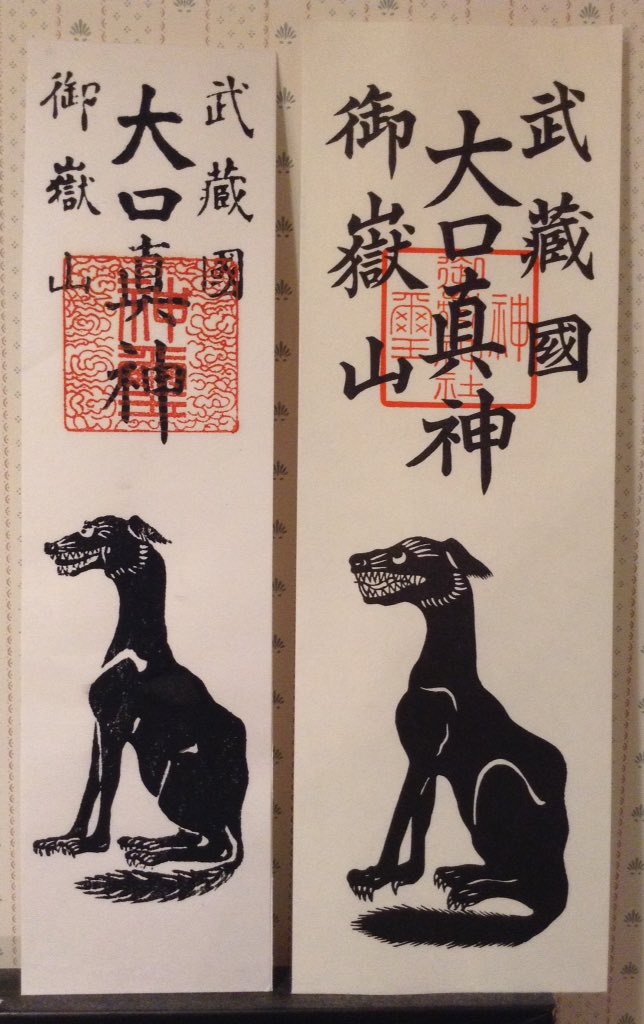 武藏國
大口真神
御嶽山
神璽
武藏國
大口真神
御嶽山
神璽